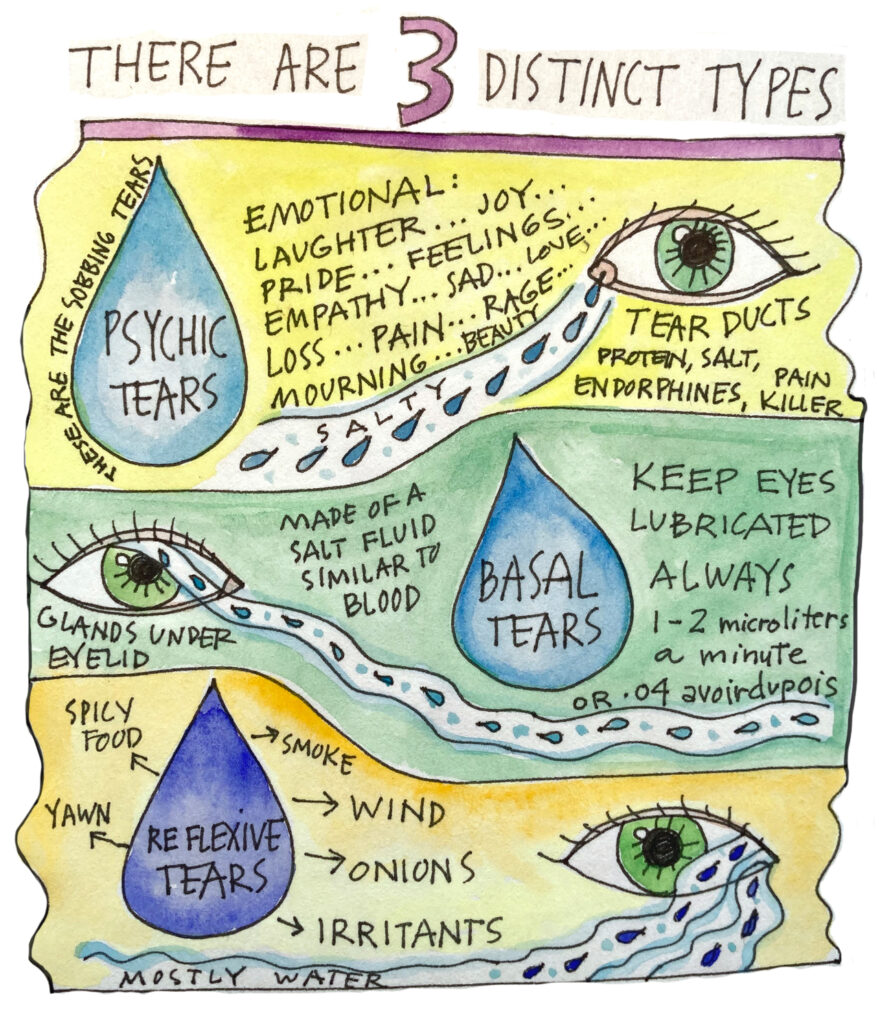 THERE ARE 3 DISTINCT TYPES
THESE ARE THE SOBBING TEARS
PSYCHIC
TEARS
EMOTIONAL:
LAUGHTER... JOY...
PRIDE... FEELINGS...
EMPATHY... SAD... LOVE...
LOSS... PAIN... RAGE...
MOURNING... BEAUTY
SALTY
TEAR DUCTS
PROTEIN, SALT,
ENDORPHINES, PAIN
KILLER
GLANDS UNDER
EYELID
MADE OF A
SALT FLUID
SIMILAR TO
BLOOD
BASAL
TEARS
KEEP EYES
LUBRICATED
ALWAYS
1-2 microliters
a minute
OR .04 avoirdupois
SPICY
FOOD
YAWN
REFLEXIVE
TEARS
SMOKE
WIND
ONIONS
IRRITANTS
MOSTLY WATER